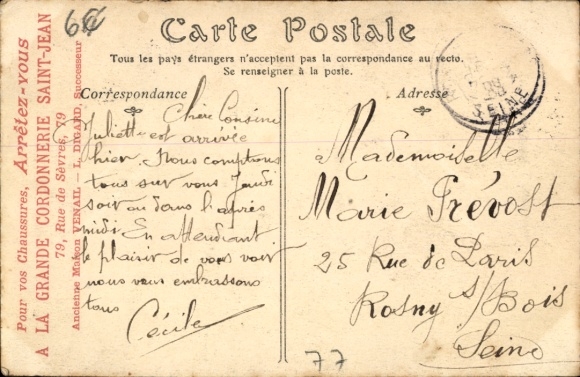 6€
Pour vos Chaussures, Arrêtez-vous
A LA GRANDE CORDONNERIE SAINT-JEAN
79, Rue de Sèvres, 79
Ancienne Maison VENAIL — L. DIGARD, Successeur
Carte Postale
Tous les pays étrangers n'acceptent pas la correspondance au recto.
Se renseigner à la poste.
Correspondance
Chère Cousine
Juliette est arrivée
hier. Nous comptons
tous sur vous Jeudi
soit ou dans l'après
midi En attendant
le plaisir de vous voir
nous vous embrassons
tous
Cécile
Adresse
SEINE
Mademoiselle
Marie Prévost
25 Rue de Paris
Rosny s/Bois
Seine
77